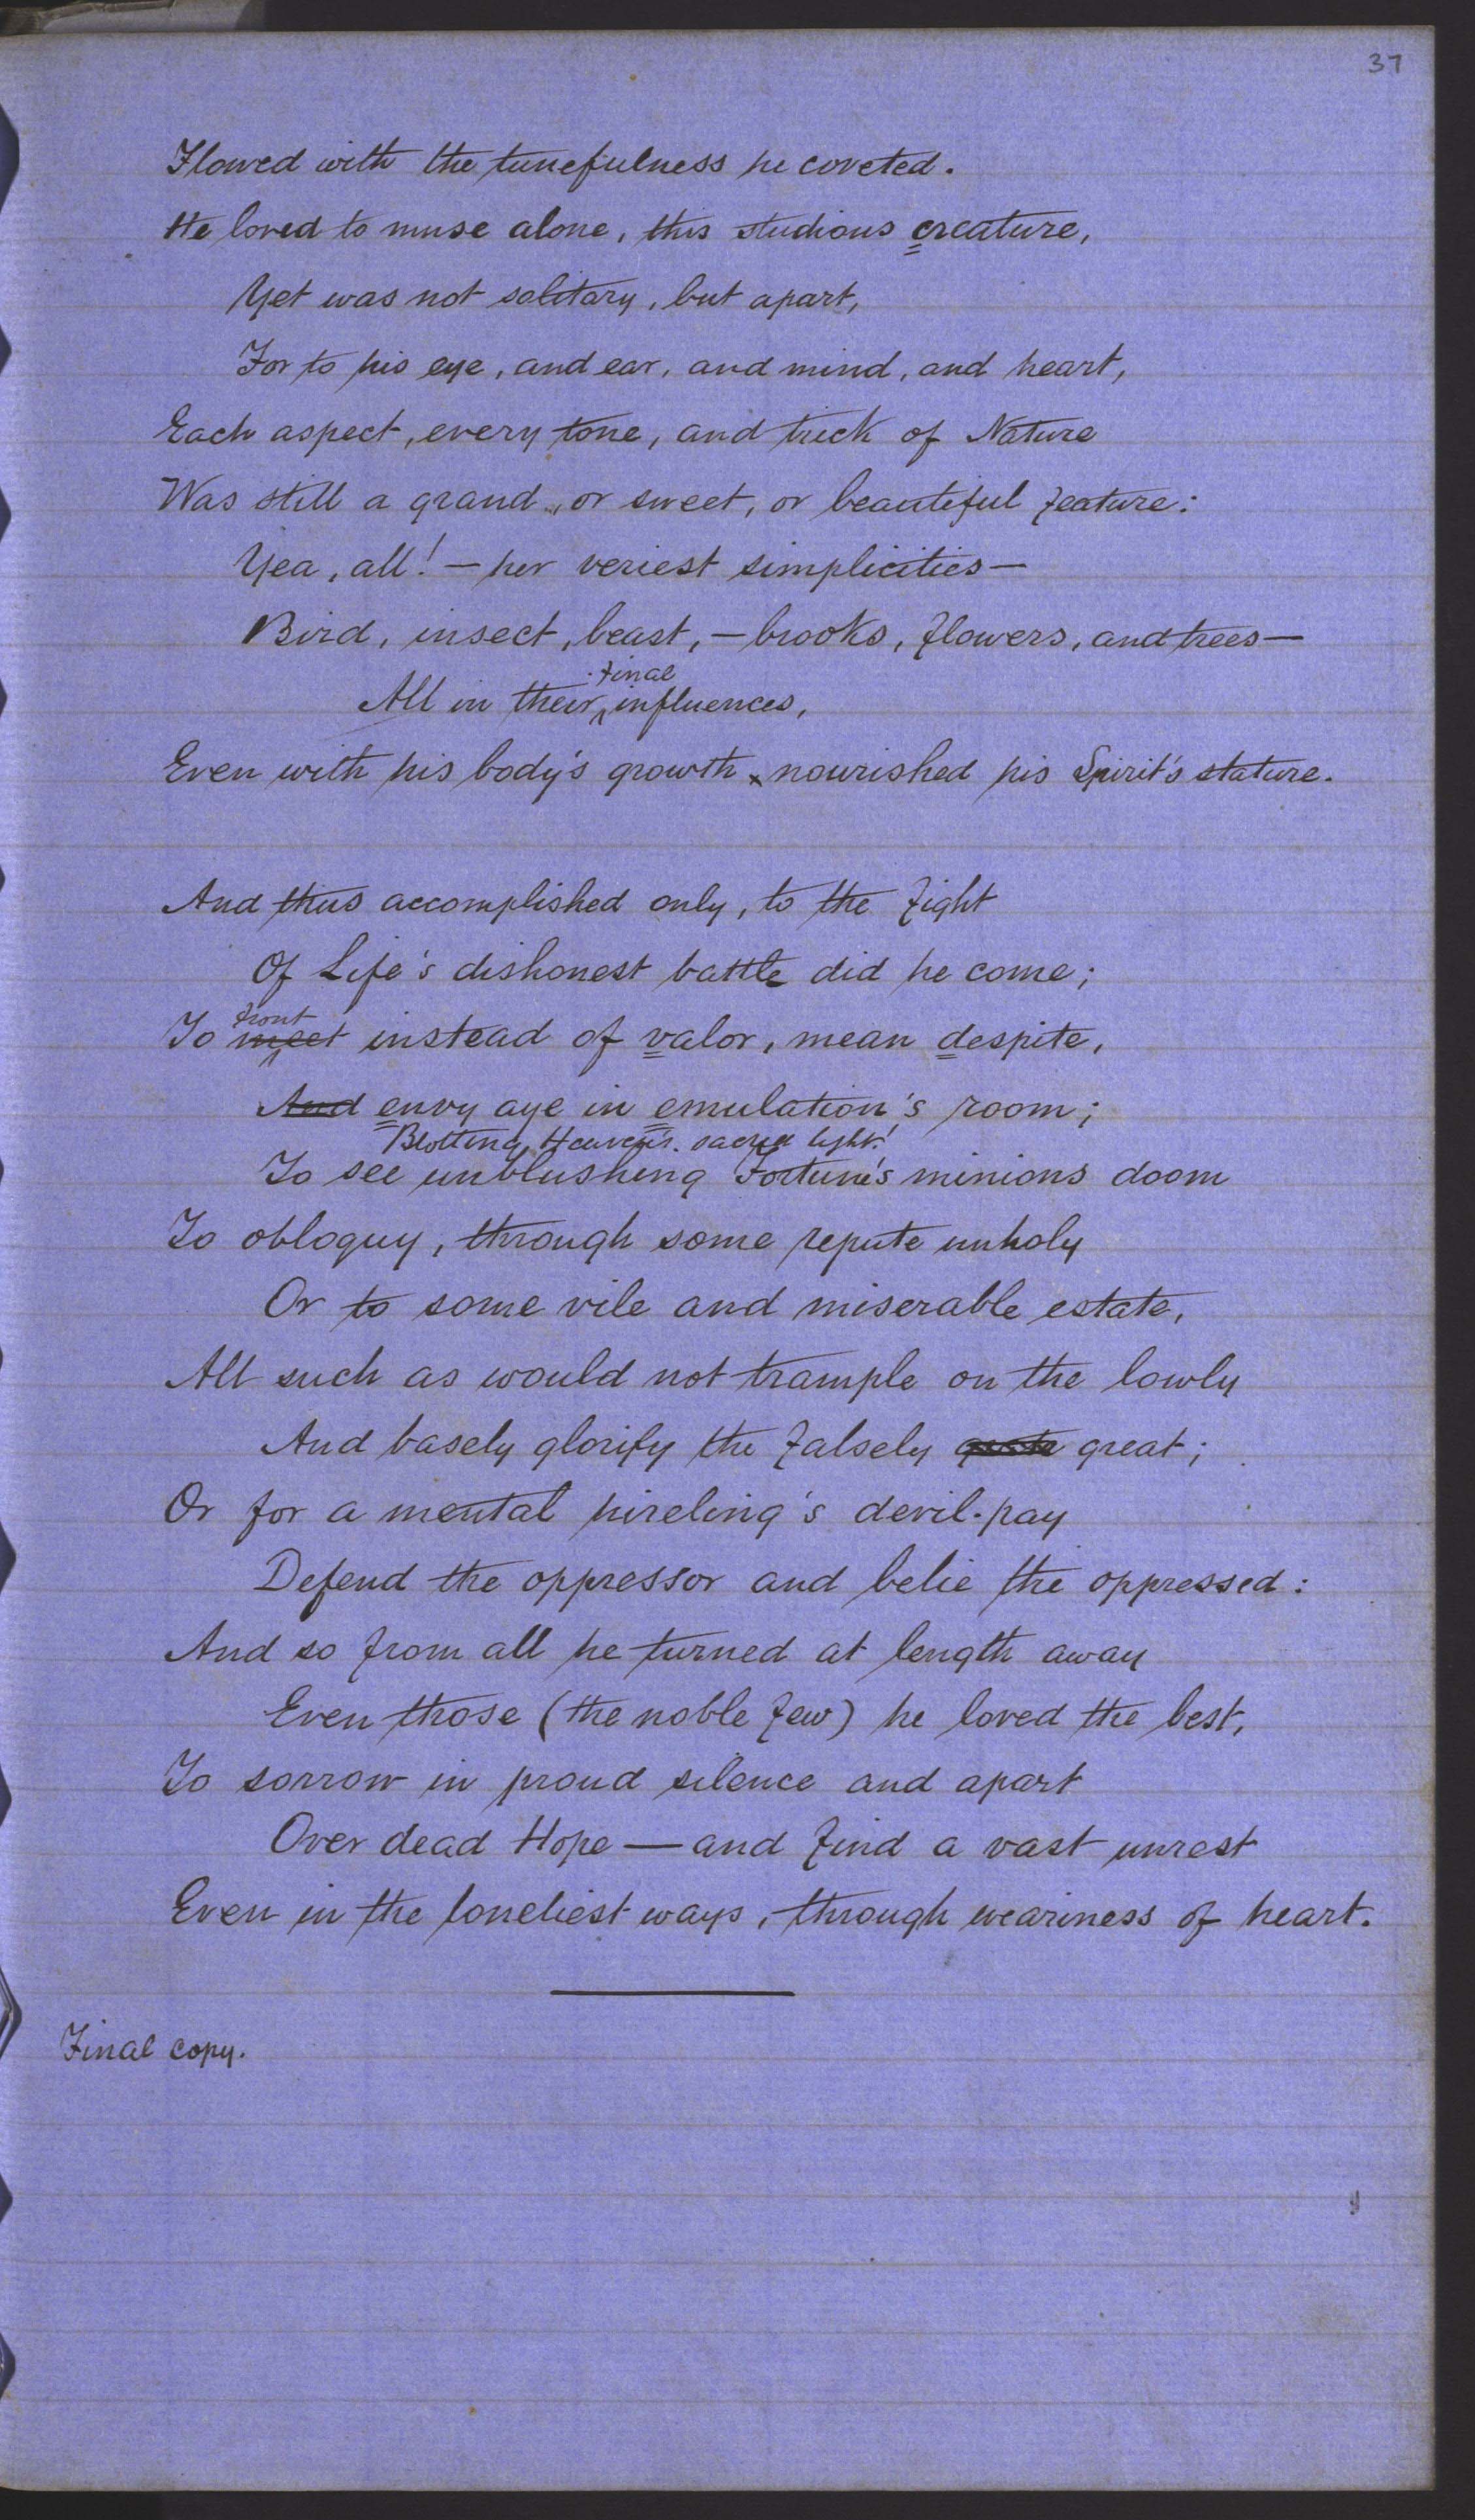 37
Flowed with the tunefulness he coveted.
He loved to muse alone, this studious creature,
Yet was not solitary, but apart,
For to his eye, and ear, and mind, and heart,
Each aspect, every tone, and trick of Nature
Was still a grand, or sweet, or beautiful feature:
Yea, all! — her veriest simplicities —
Bird, insect, beast, — brooks, flowers, and trees —
final
All in their influences,
Even with his body's growth nourished his Spirit's stature.
And thus accomplished only, to the fight
Of Life's dishonest battle did he come;
front
To meet instead of valor, mean despite,
And envy aye in emulation's room;
Blotting Heaven's sacred light!
To see unblushing Fortune's minions doom
To obloquy, through some repute unholy
Or to some vile and miserable estate,
All such as would not trample on the lowly
And basely glorify the falsely great;
Or for a mental hireling's devil-pay
Defend the oppressor and belie the oppressed:
And so from all he turned at length away
Even those (the noble few) he loved the best,
To sorrow in proud silence and apart
Over dead Hope — and find a vast unrest
Even in the loneliest ways, through weariness of heart.
Final copy.